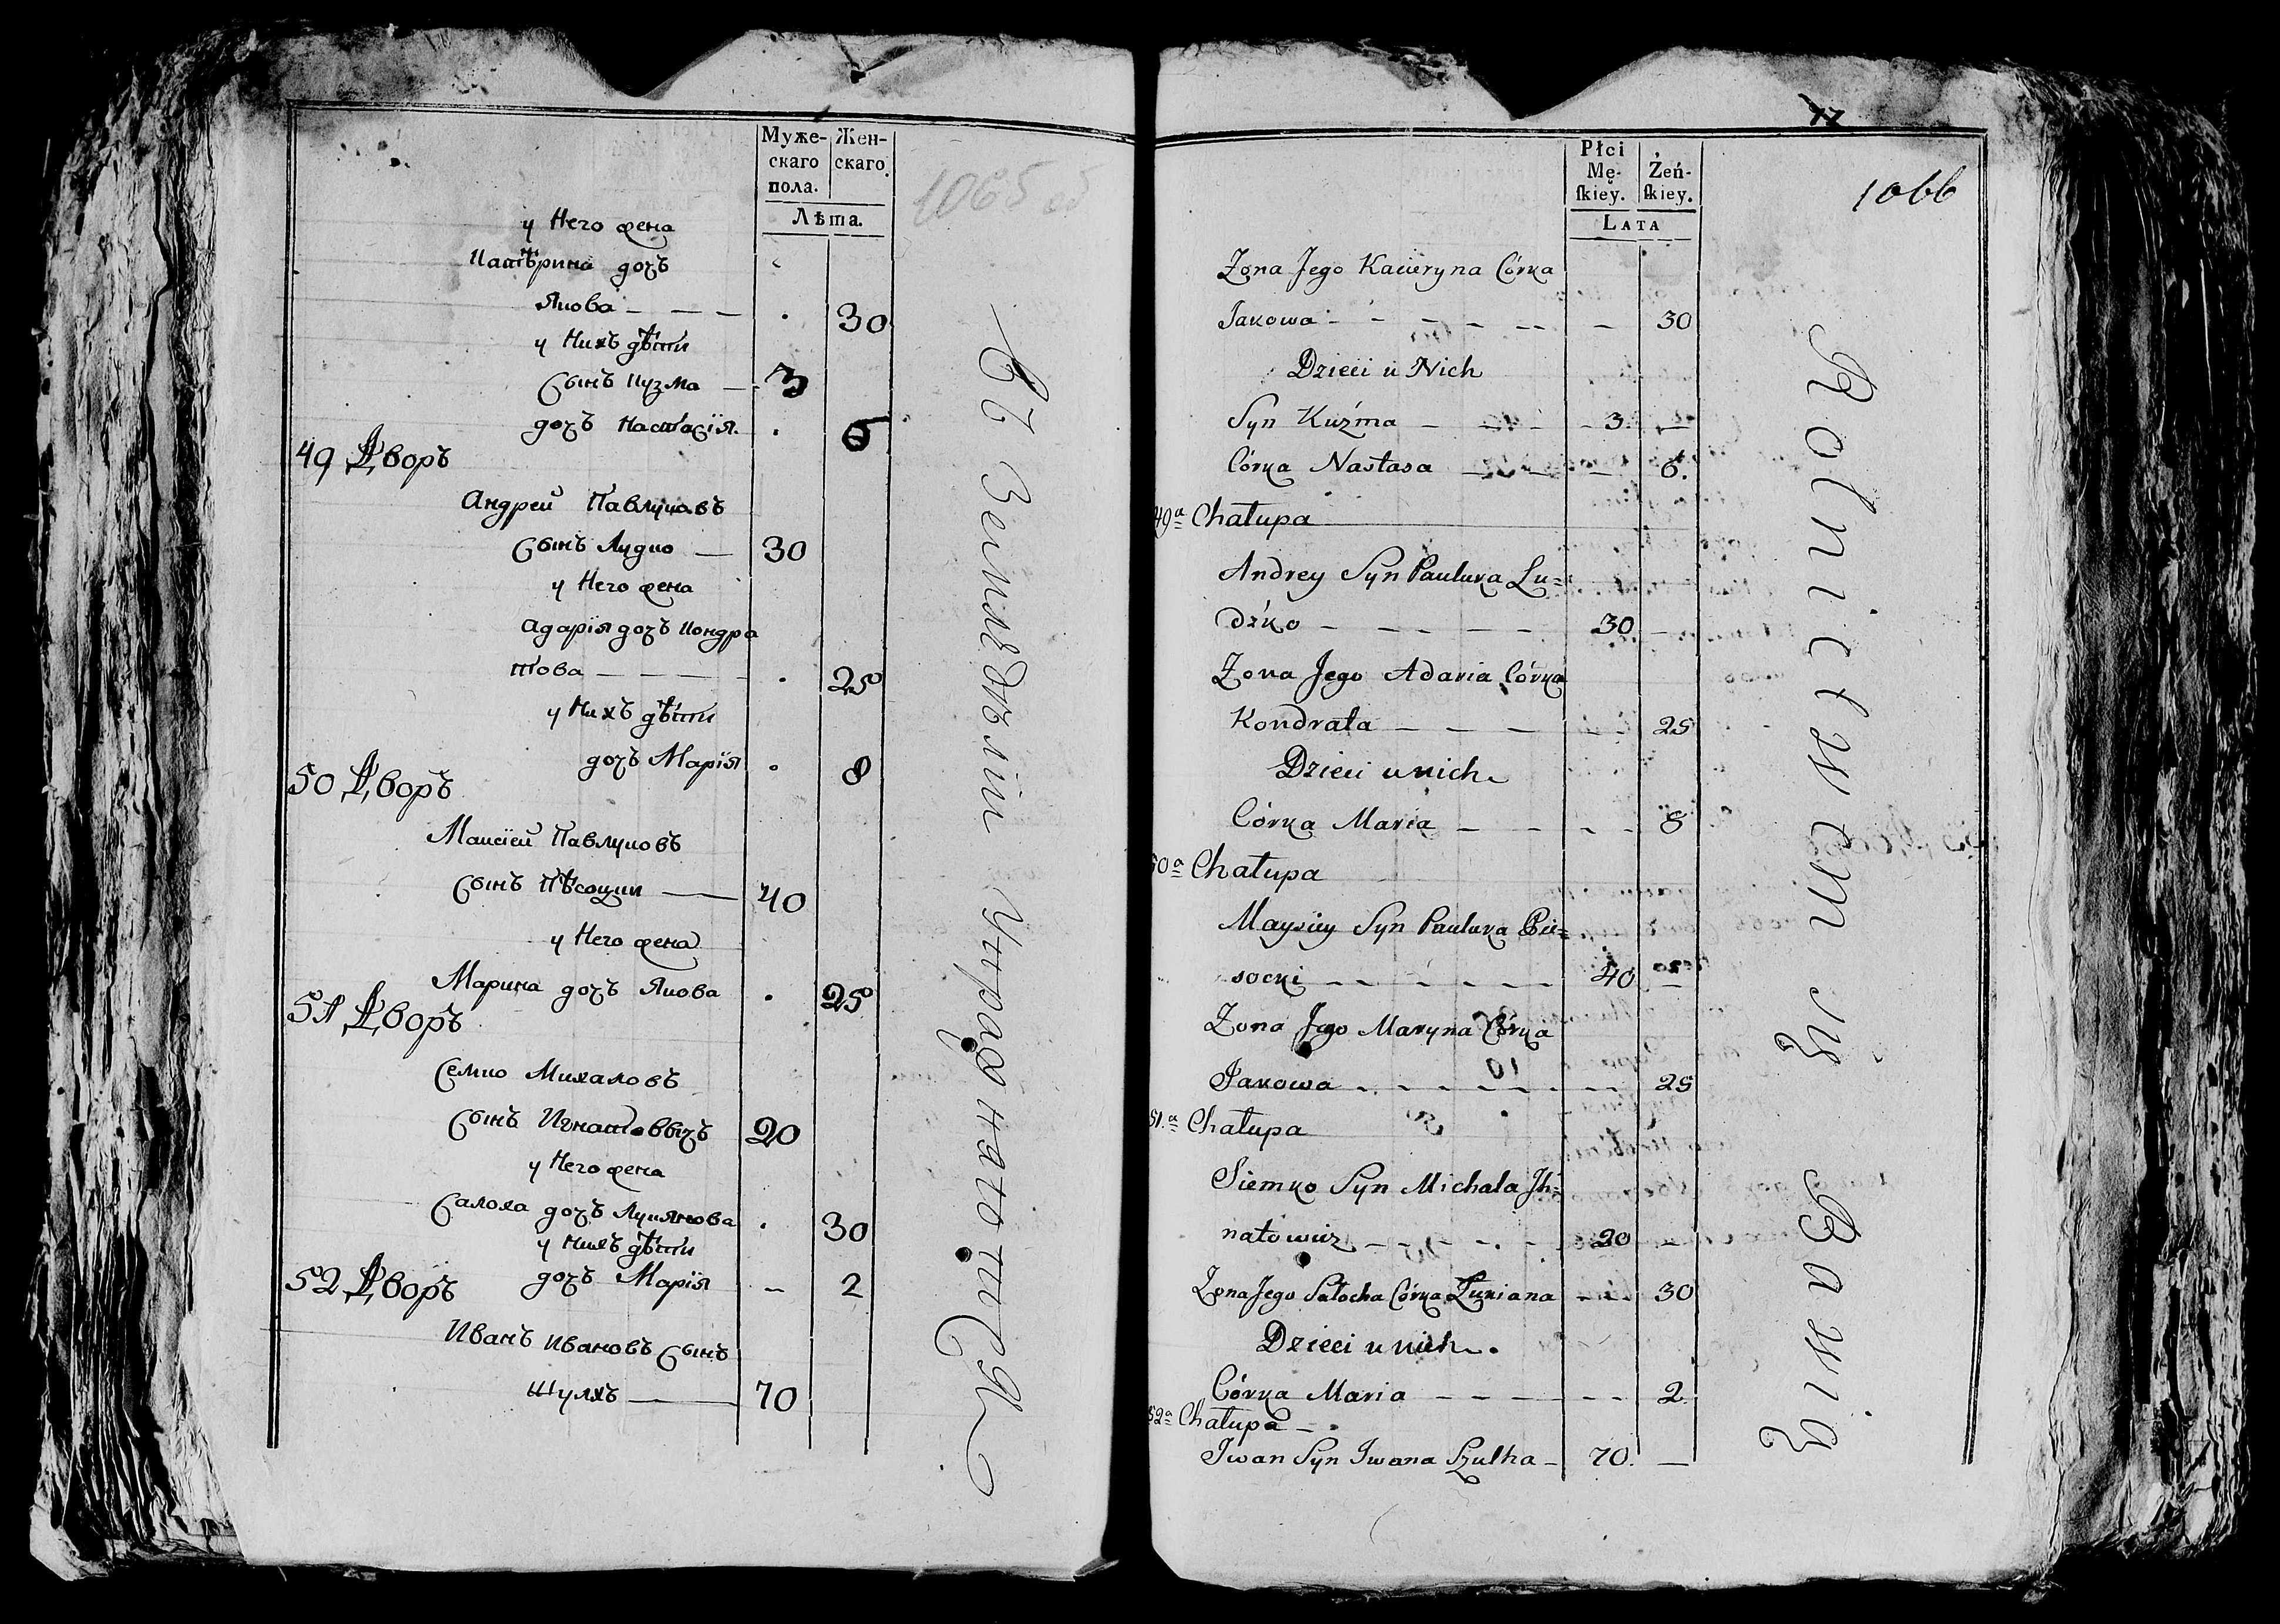 Муже-
скаго
пола.
Жен-
скаго.
Лѣта.
1065
у Него жена
Катѣрина дочъ
Якова — — — . 30
у Нихъ дѣти
Сынъ Кузма — 3
дочъ Настасія . 6
49 Дворъ
Андрей Павлуковъ
Сынъ Лудко — 30
у Него жена
Адарія дочъ Кондра
това — — — — . 25
у Нихъ дѣти
дочъ Марія . 8
50 Дворъ
Максiей Павлуковъ
Сынъ Пѣсоцки — 40
у Него жена
Марина дочъ Якова . 25
51 Дворъ
Семко Михаловъ
Сынъ Игнатоввичъ 20
у Него жена
Салоха дочъ Лукянова . 30
у Нихъ дѣти
дочъ Марія – 2
52 Дворъ
Иванъ Ивановъ Сынъ
Шулхъ — 70
Въ Земледѣлiи Упражнатотся
Płci
Mę-
ſkiey.
Żeń-
ſkiey.
LATA
77
1066
Zona Jego Kacieryna Córka
Jakowa - - - - - - - 30
Dzieci u Nich
Syn Kuźma - - - - 3. —
Córka Nastasa - - - - 6.
49ª Chałupa
Andrey Syn Pauluka Lu=
dźko - - - - - 30 —
Zona Jego Adaria Córka
Kondrata - - - - - 25
Dzieci u nich
Córka Maria - - - - - 8
50ª Chałupa
Maysiey Syn Pauluka Pie=
socki - - - - - - 40 —
Zona Jego Maryna Córka
Jakowa - - - - - - - 25
51.ª Chałupa
Siemko Syn Michała Jh=
natowicz - - - - - 20 —
Zona Jego Sałocha Córka Łukiana - - 30
Dzieci u nich.
Córka Maria - - - - - - 2
52ª Chałupa - -
Iwan Syn Iwana Szulha - 70. —
Rolnictwem Się Bawią